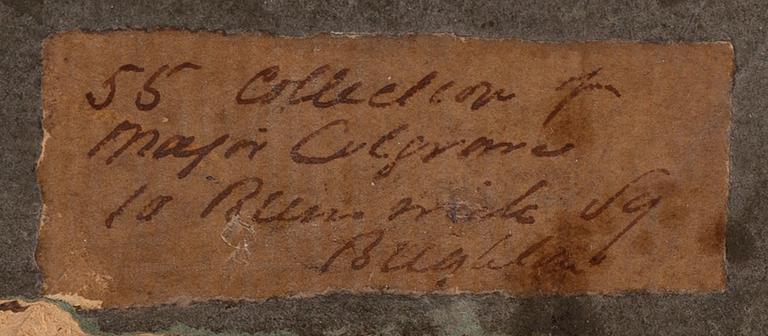 55 Collection of
Major Colgrave
10 Brunswick Sq
Brighton